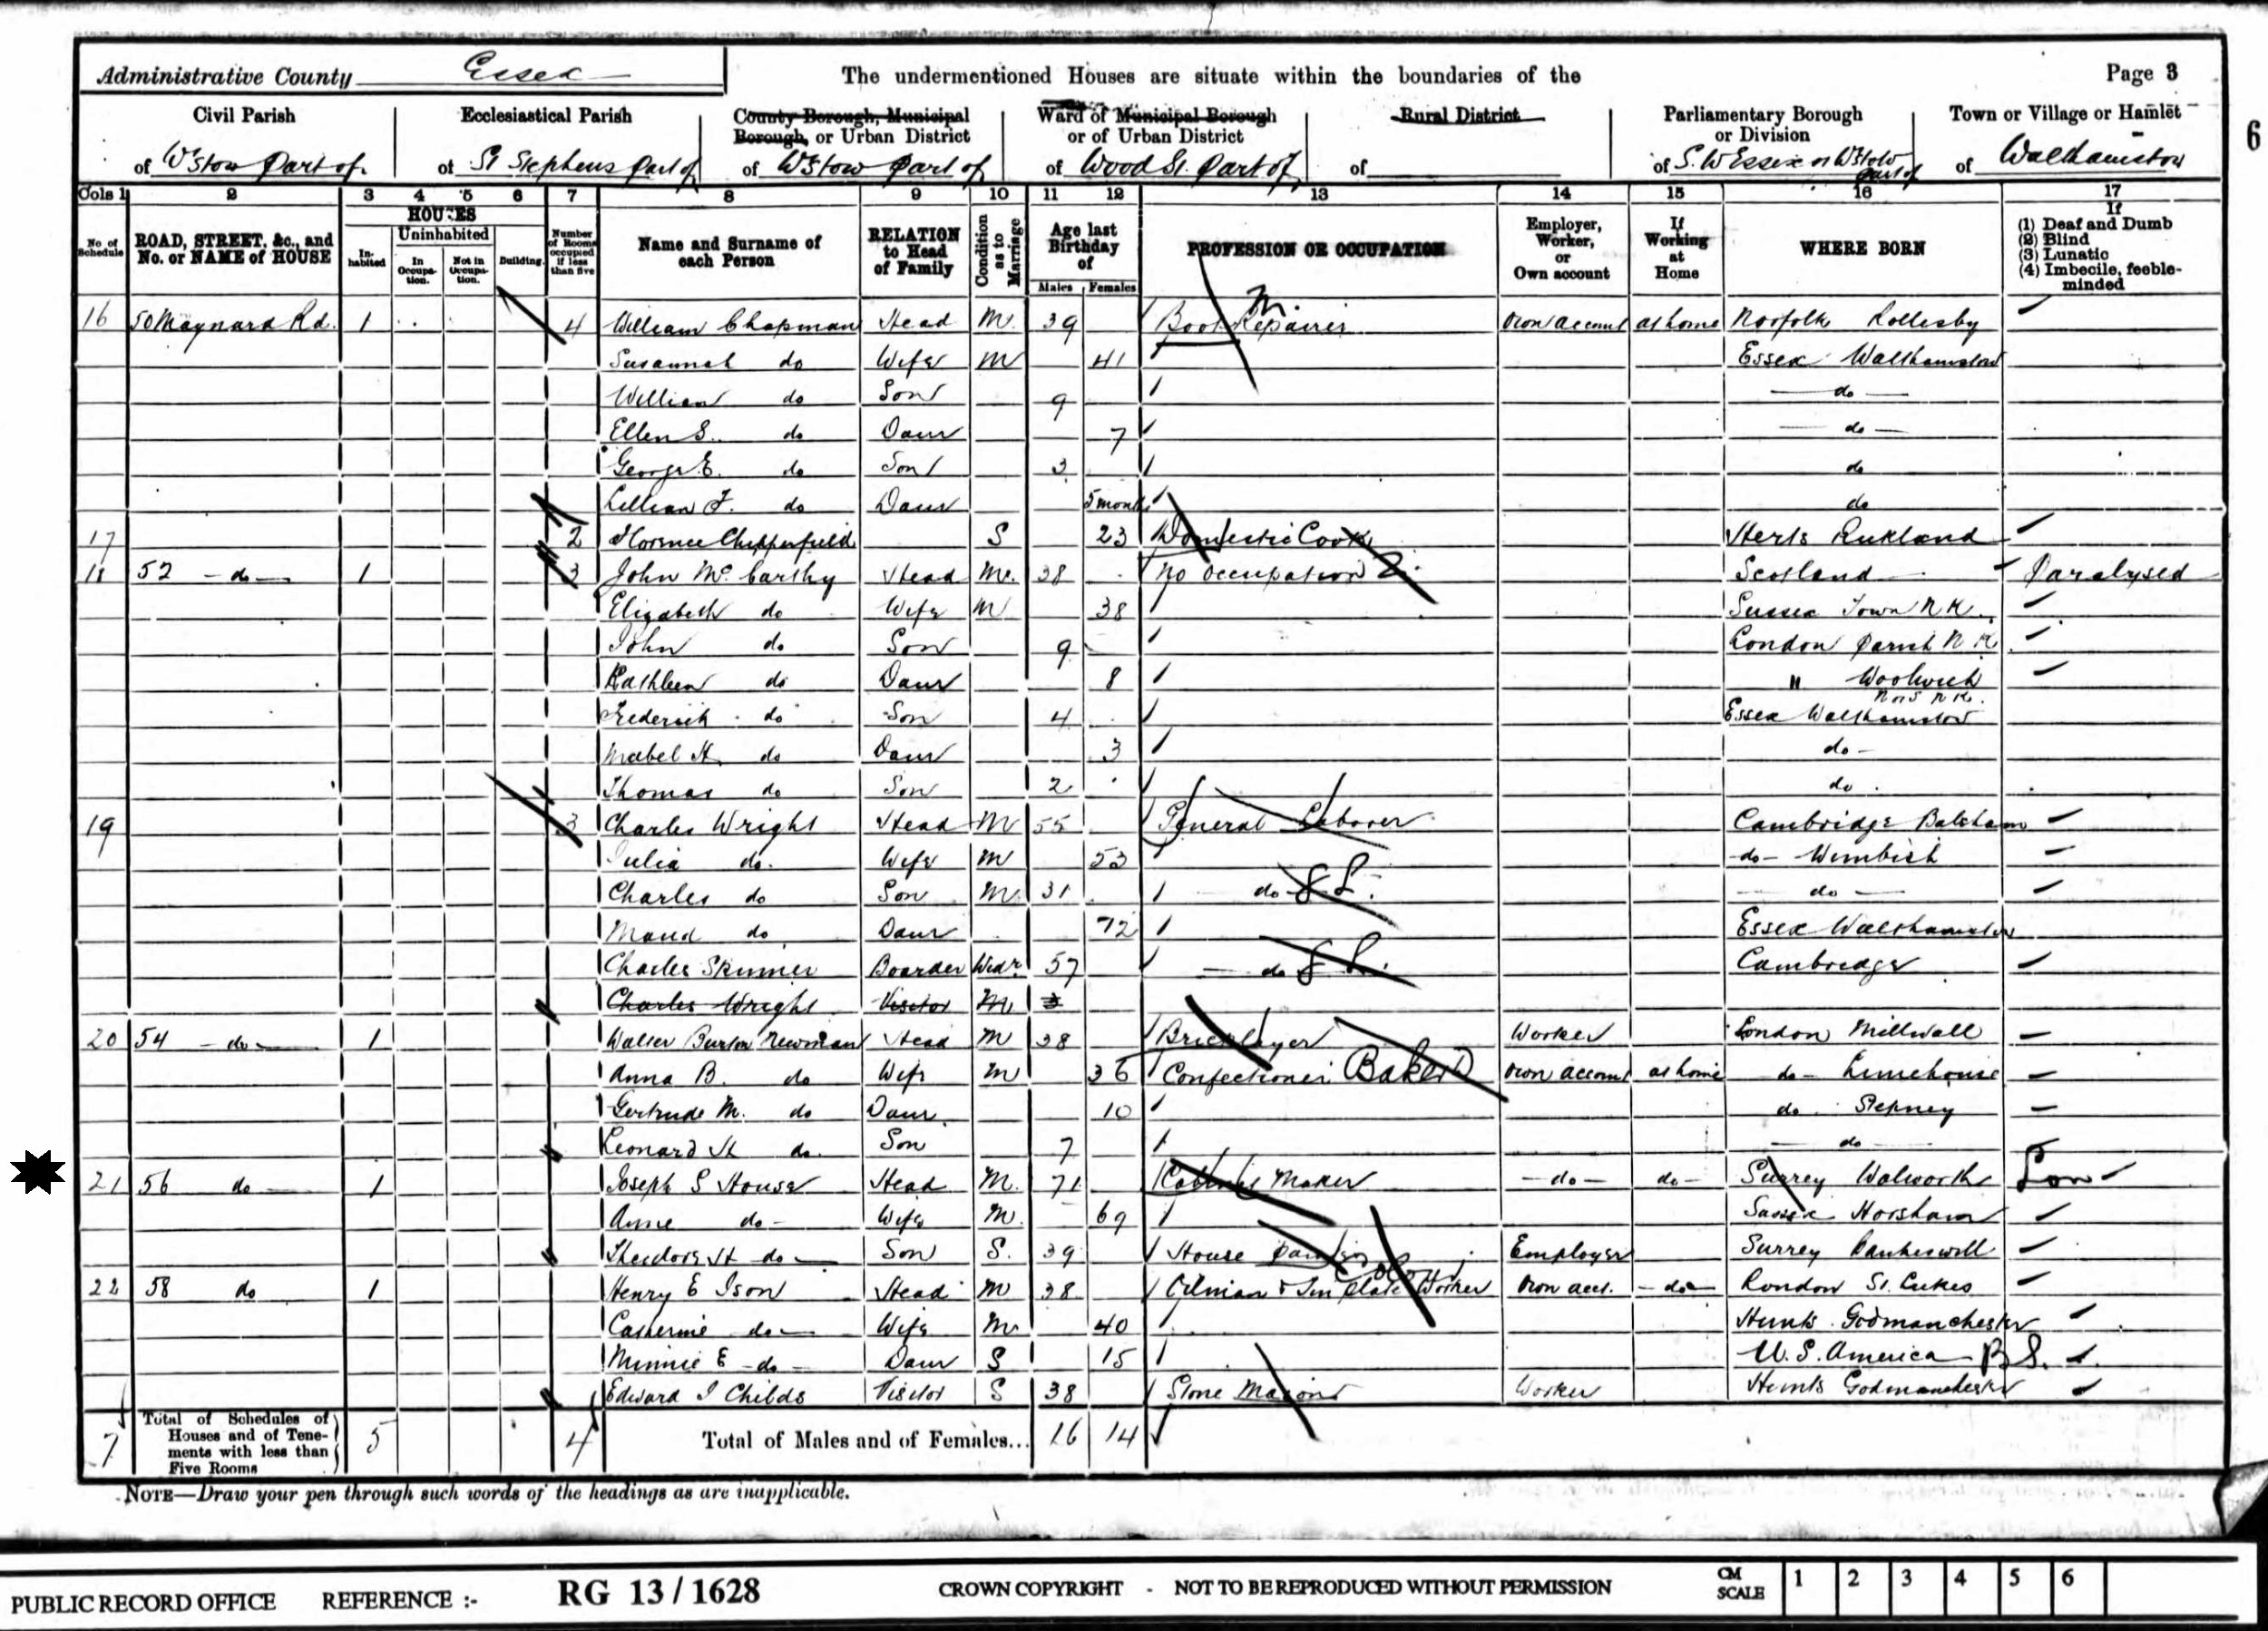 Administrative County Essex
The undermentioned Houses are situate within the boundaries of the
Page 3
6
Civil Parish
of W'Stow Part of
Ecclesiastical Parish
of St Stephens Part of
County Borough, Municipal Borough, or Urban District
of W'Stow Part of
Ward of Municipal Borough or of Urban District
of Wood St. Part of
Rural District
of
Parliamentary Borough or Division
of S. W Essex or W'Stow Part of
Town or Village or Hamlet
of Walthamstow
Cols 1 2 3 4 5 6 7 8 9 10 11 12 13 14 15 16 17
No. of Schedule
ROAD, STREET, &c., and No. or NAME of HOUSE
HOUSES
Inhabited
Uninhabited
In Occupation.
Not in Occupation.
Building.
Number of Rooms occupied if less than five
Name and Surname of each Person
RELATION to Head of Family
Condition as to Marriage
Age last Birthday of
Males Females
PROFESSION OR OCCUPATION
Employer, Worker, or Own account
If Working at Home
WHERE BORN
If
(1) Deaf and Dumb
(2) Blind
(3) Lunatic
(4) Imbecile, feeble-minded
16 50 Maynard Rd. 1 4 William Chapman Head M. 39 Boot Repairer M Own account at home Norfolk Rollesby
Susannah do Wife M 41 Essex Walthamstow
William do Son 9 do
Ellen S. do Daur 7 do
George E. do Son 3 do
Lillian F. do Daur 5 month do
17 2 Florence Chipperfield S 23 Domestic Cook Herts
18 52 do 1 3 John McCarthy Head M. 38 No occupation Scotland Paralysed
Elizabeth do Wife M 38 Sussex Town N.K.
John do Son 9 London Parish N.K.
Kathleen do Daur 8 " Woolwich
Frederick do Son 4 Essex Walthamstow
Mabel H. do Daur 3 do
Thomas do Son 2 do
19 3 Charles Wright Head M 55 General Laborer Cambridge Balsham
Julia do. Wife M 53 do Wimbish
Charles do Son M 31 do G L. do
Maud do Daur 12 Essex Walthamstow
Charles Skinner Boarder Widr. 57 do G L. Cambridge
Charles Wright Visitor M. 3
20 54 do 1 Walter Burton Newman Head M 38 Bricklayer Worker London Millwall
Anna B. do Wife M 36 Confectioner Baker Own account at home do Limehouse
Gertrude M. do Daur 10 do Stepney
Leonard H do. Son 7 do
21 56 do 1 Joseph S House Head M. 71 Cabinet Maker do do Surrey Walworth Lon
Annie do Wife M. 69 Sussex Horsham
Theodore H do Son S. 39 House Painter Employer Surrey
22 58 do 1 Henry E Ison Head M 38 Oilman & Tin Plate Worker Own acct. do London St. Lukes
Catherine do Wife M 40 Hunts Godmanchester
Minnie E do Daur S 15 U. S. America B S.
Edward J Childs Visitor S 38 Stone Mason Worker Hunts Godmanchester
7 Total of Schedules of Houses and of Tenements with less than Five Rooms 5 4 Total of Males and of Females... 16 14
NOTE—Draw your pen through such words of the headings as are inapplicable.
PUBLIC RECORD OFFICE REFERENCE :- RG 13 / 1628 CROWN COPYRIGHT - NOT TO BE REPRODUCED WITHOUT PERMISSION CM SCALE 1 2 3 4 5 6